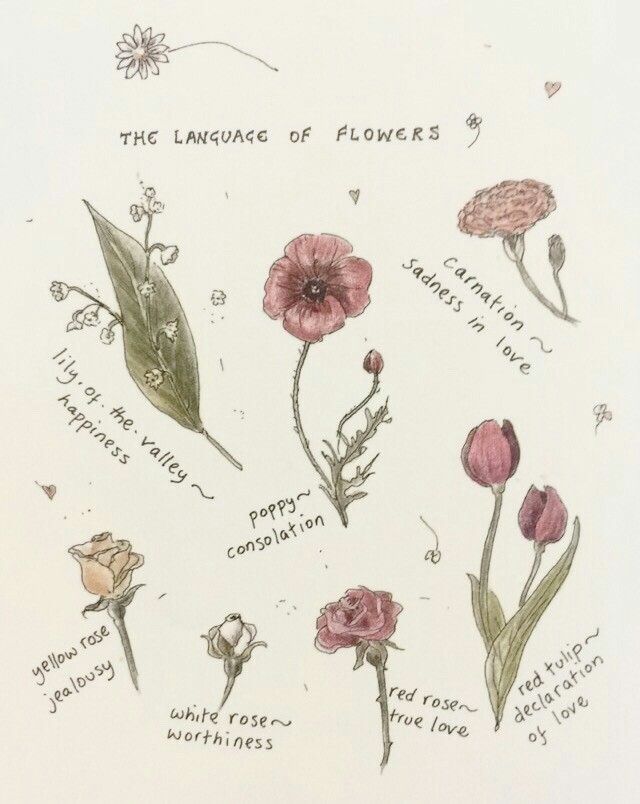 THE LANGUAGE OF FLOWERS
carnation ~
sadness in love
lily.of.the.valley ~
happiness
poppy ~
consolation
yellow rose
jealousy
white rose ~
worthiness
red rose ~
true love
red tulip ~
declaration
of love